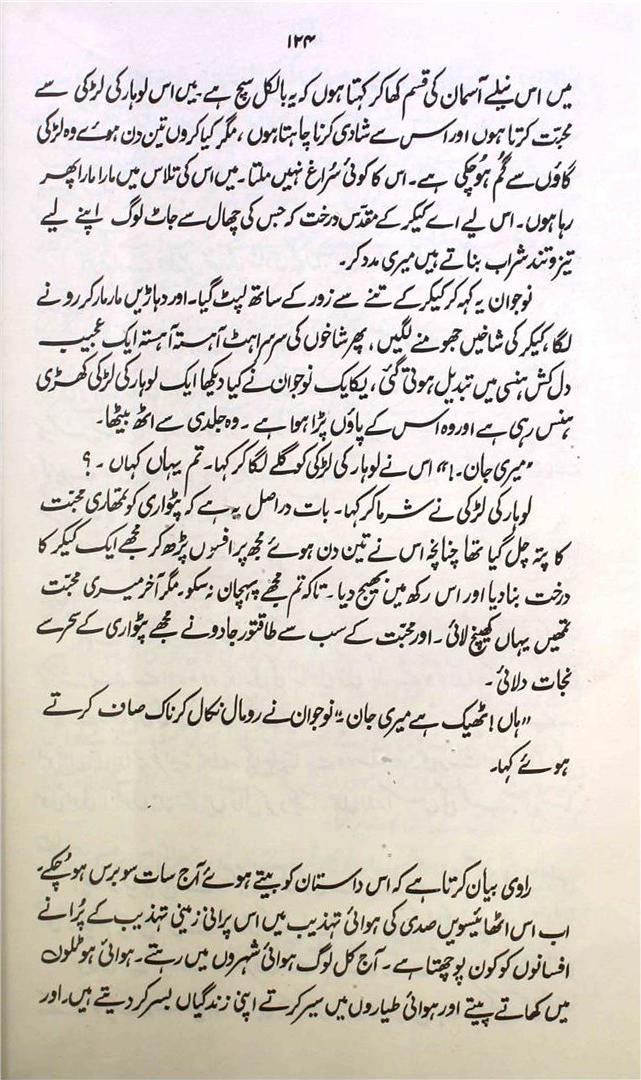 ۱۲۴
میں اس نیلے آسمان کی قسم کھا کر کہتا ہوں کہ یہ بالکل سچ ہے۔ میں اس لوہار کی لڑکی سے
محبّت کرتا ہوں اور اس سے شادی کرنا چاہتا ہوں، مگر کیا کروں تین دن ہوئے وہ لڑکی
گاؤں سے گُم ہو چکی ہے۔ اس کا کوئی سُراغ نہیں ملتا۔ میں اس کی تلاس میں مارا مارا پھر
رہا ہوں۔ اس لیے اے کیکر کے مقدّس درخت کہ جس کی چھال سے جاٹ لوگ اپنے لیے
تیز و تند شراب بناتے ہیں میری مدد کر۔
نوجوان یہ کہہ کر کیکر کے تنے سے زور کے ساتھ لپٹ گیا۔ اور دہاڑیں مار مار کر رونے
لگا، کیکر کی شاخیں جھومنے لگیں، پھر شاخوں کی سرسراہٹ آہستہ آہستہ ایک عجیب
دل کش ہنسی میں تبدیل ہوتی گئی، یکایک نوجوان نے کیا دیکھا ایک لوہار کی لڑکی کھڑی
ہنس رہی ہے اور وہ اس کے پاؤں پڑا ہوا ہے ۔ وہ جلدی سے اٹھ بیٹھا۔
”میری جان۔!“ اس نے لوہار کی لڑکی کو گلے لگا کر کہا۔ تم یہاں کہاں ۔؟
لوہار کی لڑکی نے شرما کر کہا۔ بات دراصل یہ ہے کہ پٹواری کو تمھاری محبّت
کا پتہ چل گیا تھا چنانچہ اس نے تین دن ہوئے مجھ پر افسوں پڑھ کر مجھے ایک کیکر کا
درخت بنا دیا اور اس رکھ میں بھیج دیا۔ تاکہ تم مجھے پہچان نہ سکو۔ مگر آخر میری محبّت
تمھیں یہاں کھینچ لائی ۔ اور محبّت کے سب سے طاقتور جادو نے مجھے پٹواری کے سحر سے
نجات دلائی ۔
”ہاں! ٹھیک ہے میری جان ۔“ نوجوان نے رومال نکال کر ناک صاف کرتے
ہوئے کہا۔
راوی بیان کرتا ہے کہ اس داستان کو بیتے ہوئے آج سات سو برس ہو چُکے۔
اب اس اٹھائیسویں صدی کی ہوائی تہذیب میں اس پرانی زمینی تہذیب کے پُرانے
افسانوں کو کون پوچھتا ہے۔ آج کل لوگ ہوائی شہروں میں رہتے۔ ہوائی ہوٹلوں
میں کھاتے پیتے اور ہوائی طیاروں میں سیر کرتے اپنی زندگیاں بسر کر دیتے ہیں۔ اور